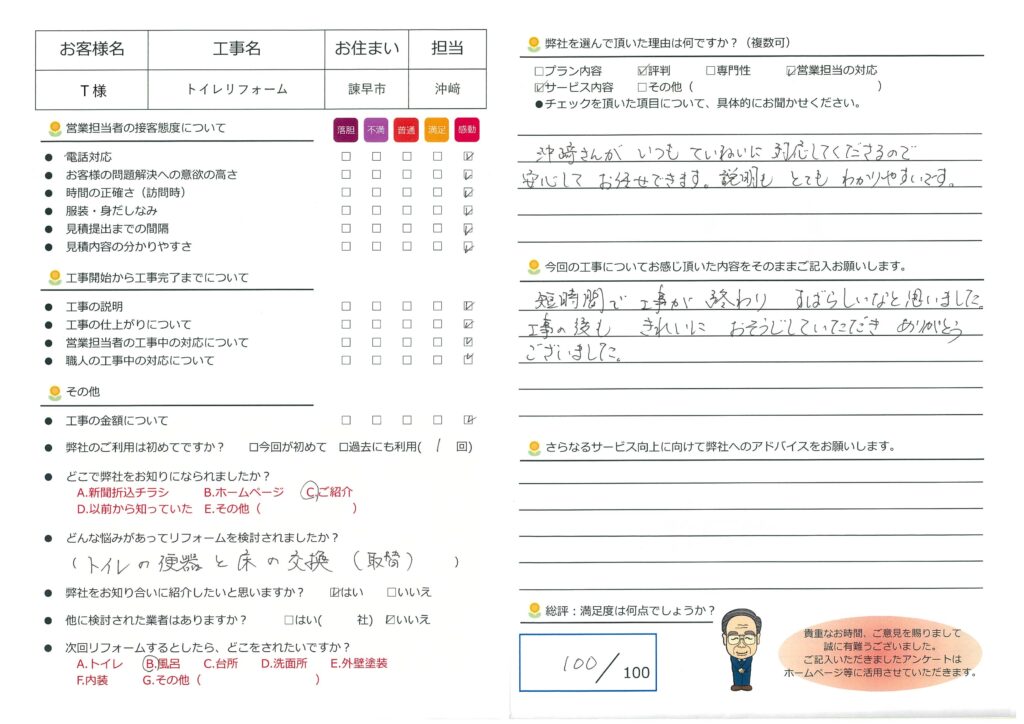 お客様名 工事名 お住まい 担当
T様 トイレリフォーム 諫早市 沖﨑
営業担当者の接客態度について 落胆 不満 普通 満足 感動
● 電話対応 □ □ □ □ ☑
● お客様の問題解決への意欲の高さ □ □ □ □ ☑
● 時間の正確さ（訪問時） □ □ □ □ ☑
● 服装・身だしなみ □ □ □ □ ☑
● 見積提出までの間隔 □ □ □ □ ☑
● 見積内容の分かりやすさ □ □ □ □ ☑
工事開始から工事完了までについて
● 工事の説明 □ □ □ □ ☑
● 工事の仕上がりについて □ □ □ □ ☑
● 営業担当者の工事中の対応について □ □ □ □ ☑
● 職人の工事中の対応について □ □ □ □ ☑
その他
● 工事の金額について □ □ □ □ ☑
● 弊社のご利用は初めてですか？ □今回が初めて □過去にも利用( 1 回)
● どこで弊社をお知りになられましたか？
A.新聞折込チラシ B.ホームページ C.ご紹介
D.以前から知っていた E.その他（ ）
● どんな悩みがあってリフォームを検討されましたか？
（トイレの便器と床の交換（取替） ）
● 弊社をお知り合いに紹介したいと思いますか？ ☑はい □いいえ
● 他に検討された業者はありますか？ □はい( 社) ☑いいえ
● 次回リフォームするとしたら、どこをされたいですか？
A.トイレ B.風呂 C.台所 D.洗面所 E.外壁塗装
F.内装 G.その他（ ）
弊社を選んで頂いた理由は何ですか？（複数可）
□プラン内容 ☑評判 □専門性 ☑営業担当の対応
☑サービス内容 □その他（ ）
●チェックを頂いた項目について、具体的にお聞かせください。
沖﨑さんが いつも ていねいに 対応してくださるので
安心して お任せできます。説明も とても わかりやすいです。
今回の工事についてお感じ頂いた内容をそのままご記入お願いします。
短時間で 工事が 終わり すばらしいなと思いました。
工事の後も きれいに おそうじしていただき ありがとう
ございました。
さらなるサービス向上に向けて弊社へのアドバイスをお願いします。
総評：満足度は何点でしょうか？
100/100
貴重なお時間、ご意見を賜りまして
誠に有難うございました。
ご記入いただきましたアンケートは
ホームページ等に活用させていただきます。